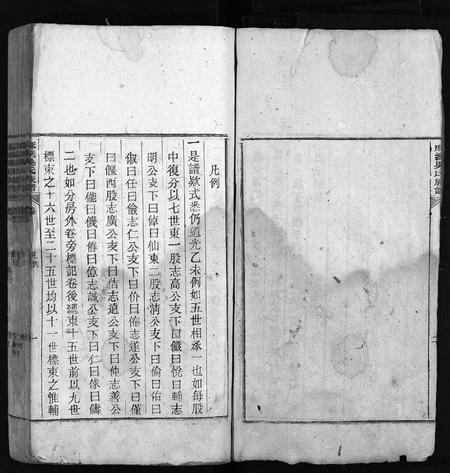 凡例
一是譜欵式悉仍道光乙未例如五世相承一也如每股
中復分以七世東一股志高公支下曰儀曰悅曰輔志
明公支下曰倬曰仙東二股志清公支下曰倫曰佑曰
俶曰任曰儉志仁公支下曰价曰偉志達公支下曰僅
曰偃西股志廣公支下曰佶志遠公支下曰仲志善公
支下曰儱曰俄曰偆曰億志誠公支下曰仁曰俅曰儔
二也如分房外卷旁標記卷後總東十五世前以九世
標東之十六世至二十五世均以十一世標東之惟輔